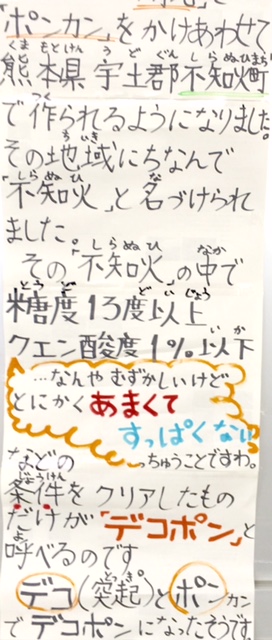 「ポンカン」をかけあわせて
熊本県 宇土郡不知火町
で作られるようになりました。
その地域にちなんで
「不知火」と名づけられ
ました。
その「不知火」の中で
糖度13度以上
クエン酸度1%以下
…なんやむずかしいけど
とにかくあまくて
すっぱくない
などの
ちゅうことですわ。
条件をクリアしたもの
だけが「デコポン」と
呼べるのです
デコ(突起)とポンカン
でデコポンになったそうです